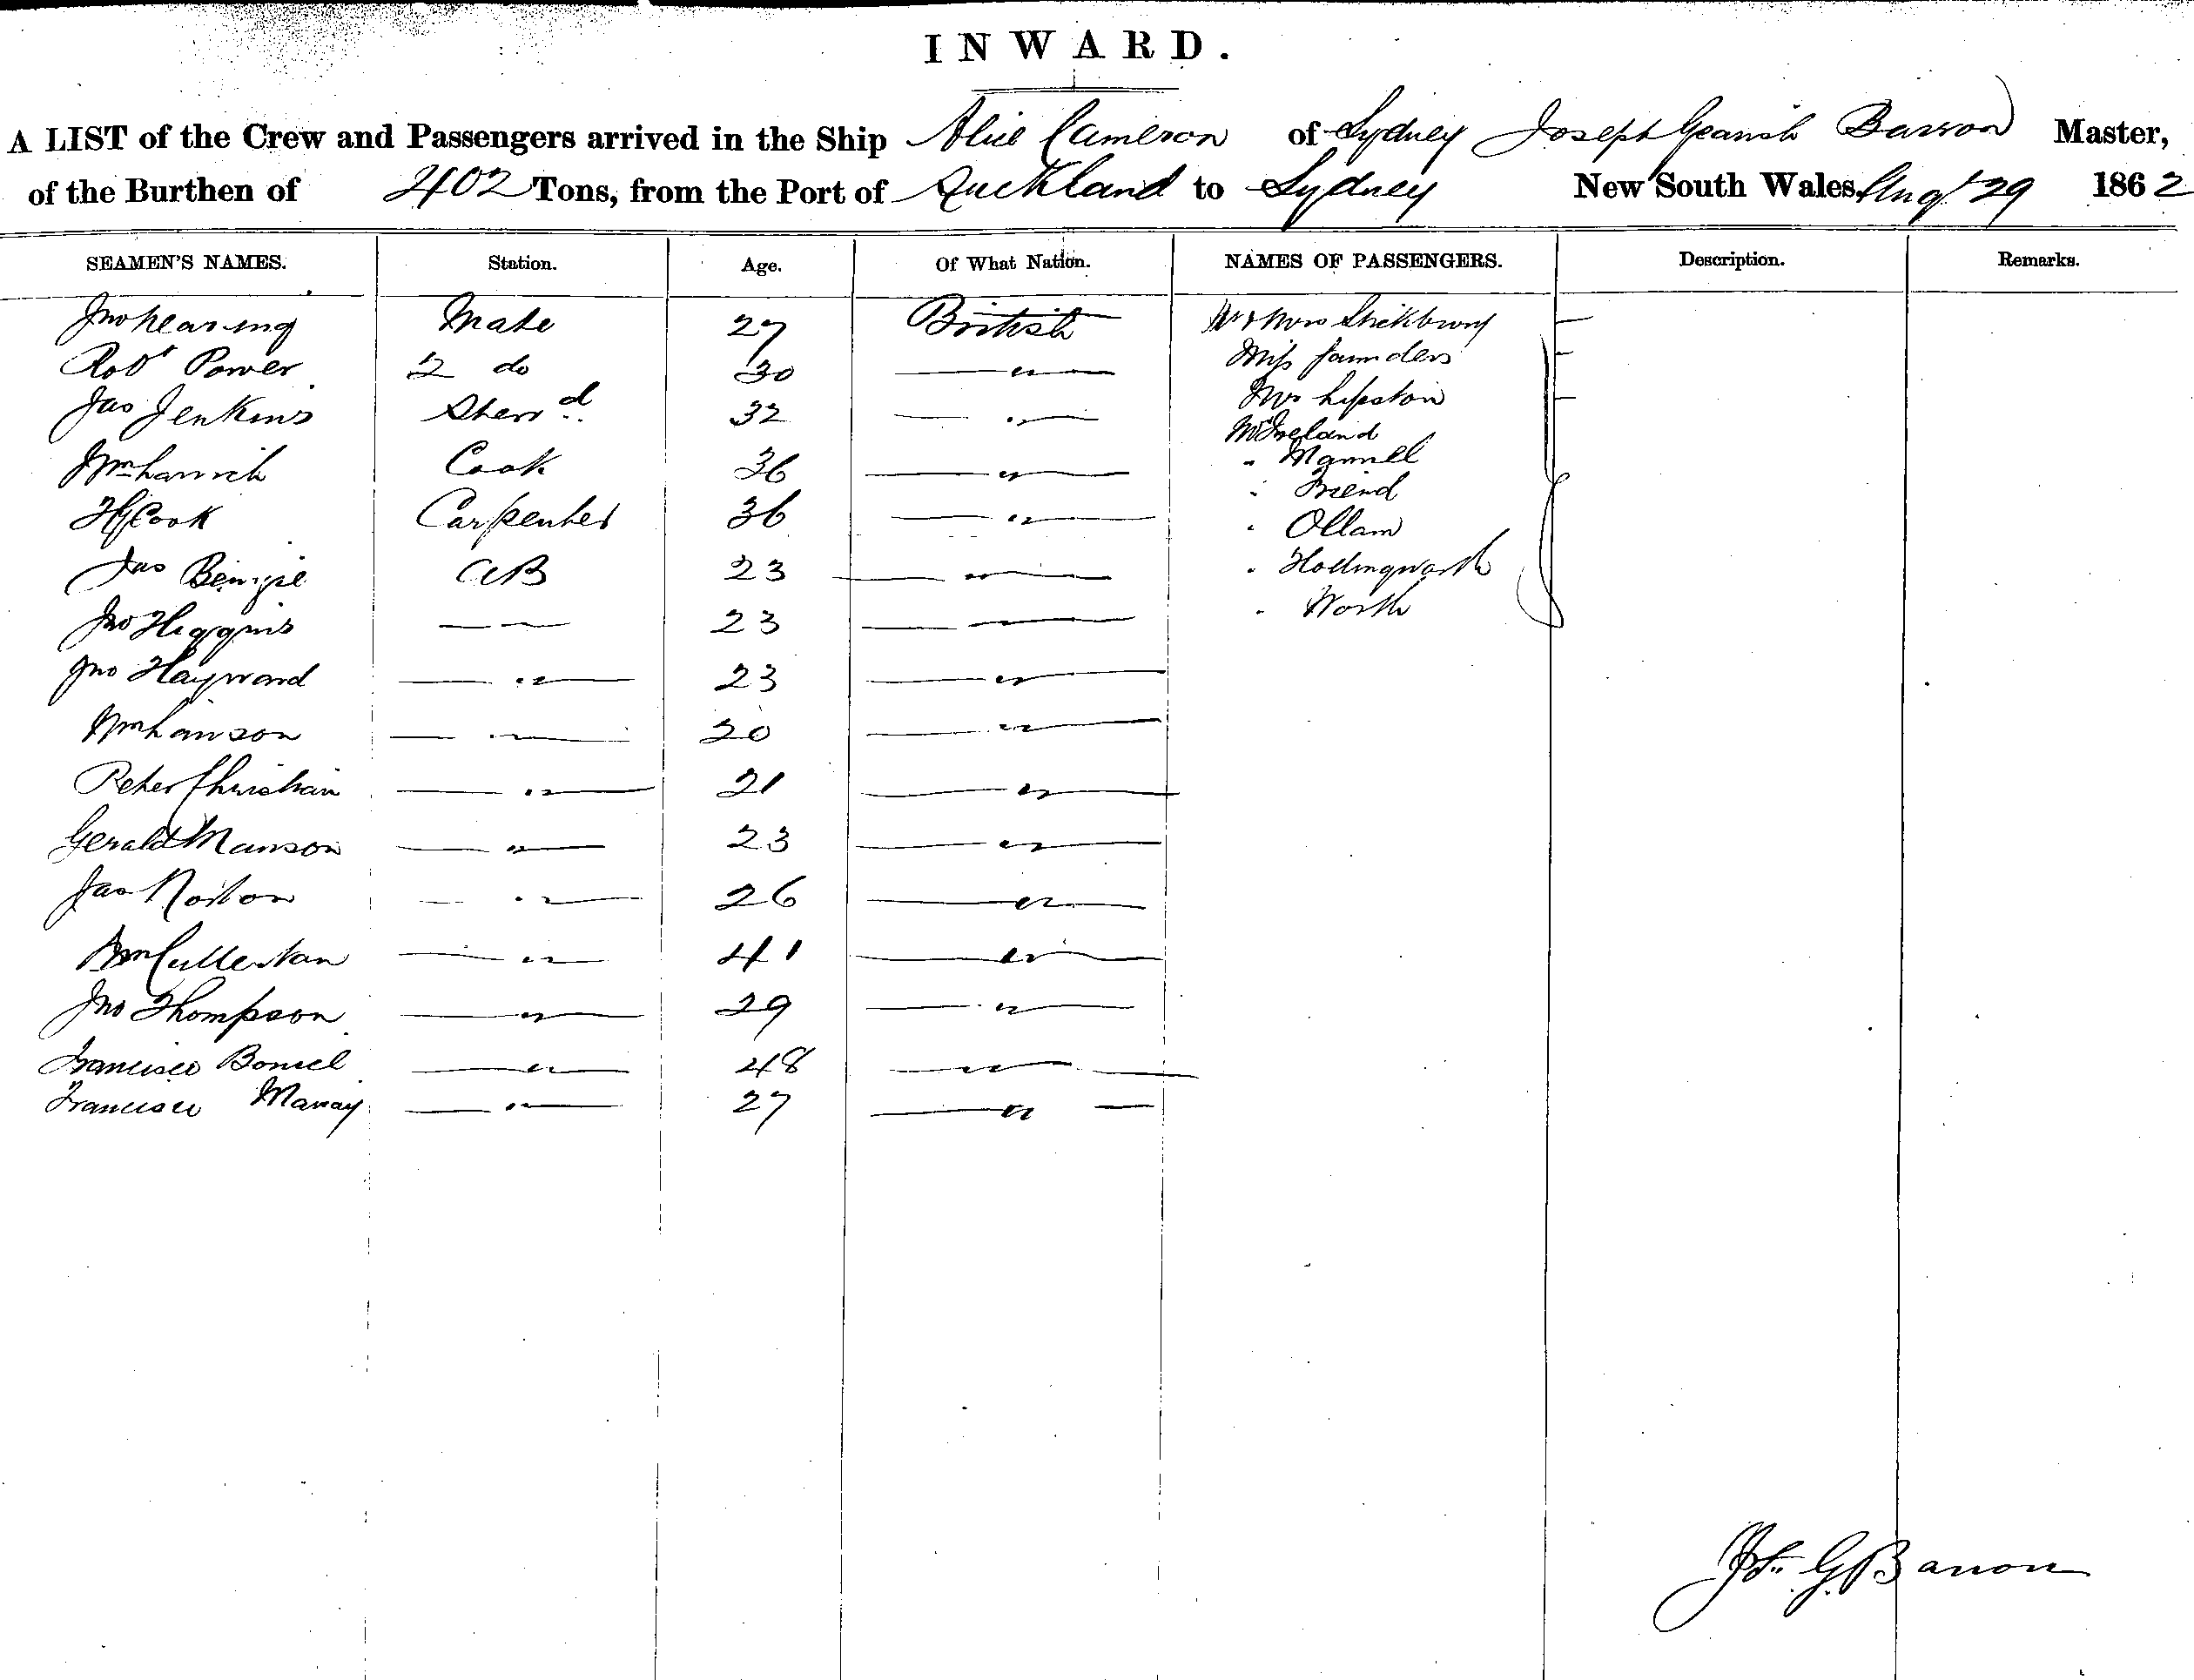 INWARD.
A LIST of the Crew and Passengers arrived in the Ship Alice Cameron of Sydney Joseph Barron Master,
of the Burthen of 402 Tons, from the Port of Auckland to Sydney New South Wales, Augt 29 1862
SEAMEN'S NAMES. Station. Age. Of What Nation. NAMES OF PASSENGERS. Description. Remarks.
Jno Mate 27 British Mr & Mrs
Robt Power 2 do 30 — " — Miss Saunders
Jas Jenkins Stewd 32 — " — Mrs Lipston
Wm Cook 36 — " — Mr Ireland
" 
H G Cook Carpenter 36 — " — " Friend
" Ollam
Jas AB 23 — " — " Hollingworth
Jno Higgins — " — 23 — " — " Worth
Jno Hayward — " — 23 — " —
Wm Lawson — " — 20 — " —
Peter Christian — " — 21 — " —
Gerald Manson — " — 23 — " —
Jas Norton — " — 26 — " —
Wm Cullertan — " — 41 — " —
Jno Thompson — " — 29 — " —
Francisco — " — 48 — " —
Francisco — " — 27 — " —
Jos. G. Barron